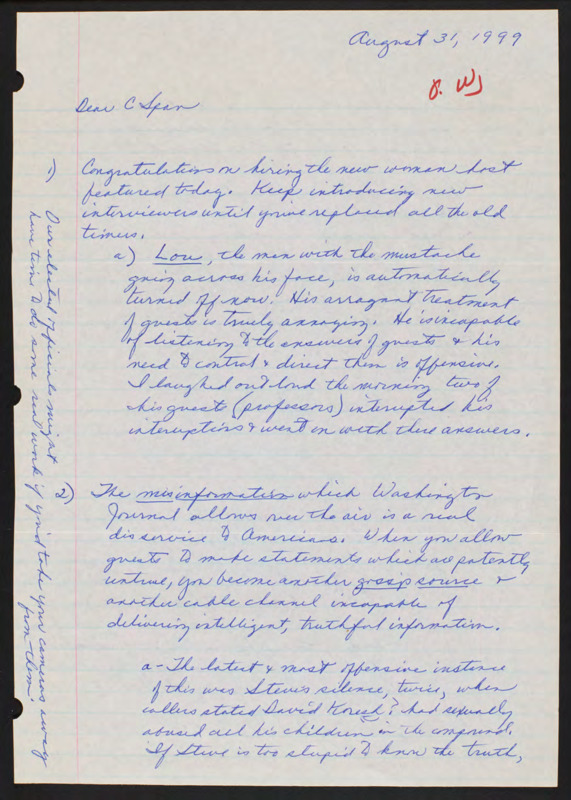 August 31, 1999
J. W
Dear C Span
1) Congratulations on hiring the new woman host
featured today. Keep introducing new
interviewers until you've replaced all the old
timers.
a) Lou, the man with the mustache
going across his face, is automatically
turned off now. His arragant treatment
of guests is truely annoying. He is incapable
of listening to the answers of guests & his
need to control & direct them is offensive.
I laughed out loud the morning two of
his guest (professors) interupted his
interuptions & went on with there answers.
2) The misinformation which Washington
Journal allows over the air is a real
disservice to Americans. When you allow
guests to make statements which are patently
untrue, you become another gossip source &
another cable channel incapable of
delivering intelligent, truthful information.
a - The latest & most offensive instance
of this was Steve's silence, twice, when
callers stated David Koresh? had sexually
abused all his children in the compound.
If Steve is too stupid to know the truth,
Our elected officials might
have time to do some real work if you'd take your cameras away
from them.